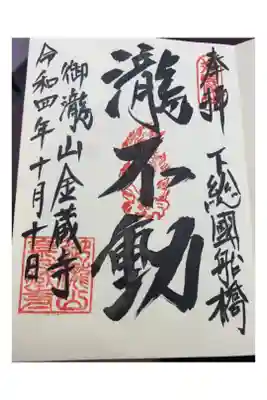 奉拝
下總國船橋
瀧不動
御瀧山金蔵寺
令和四年十月十日